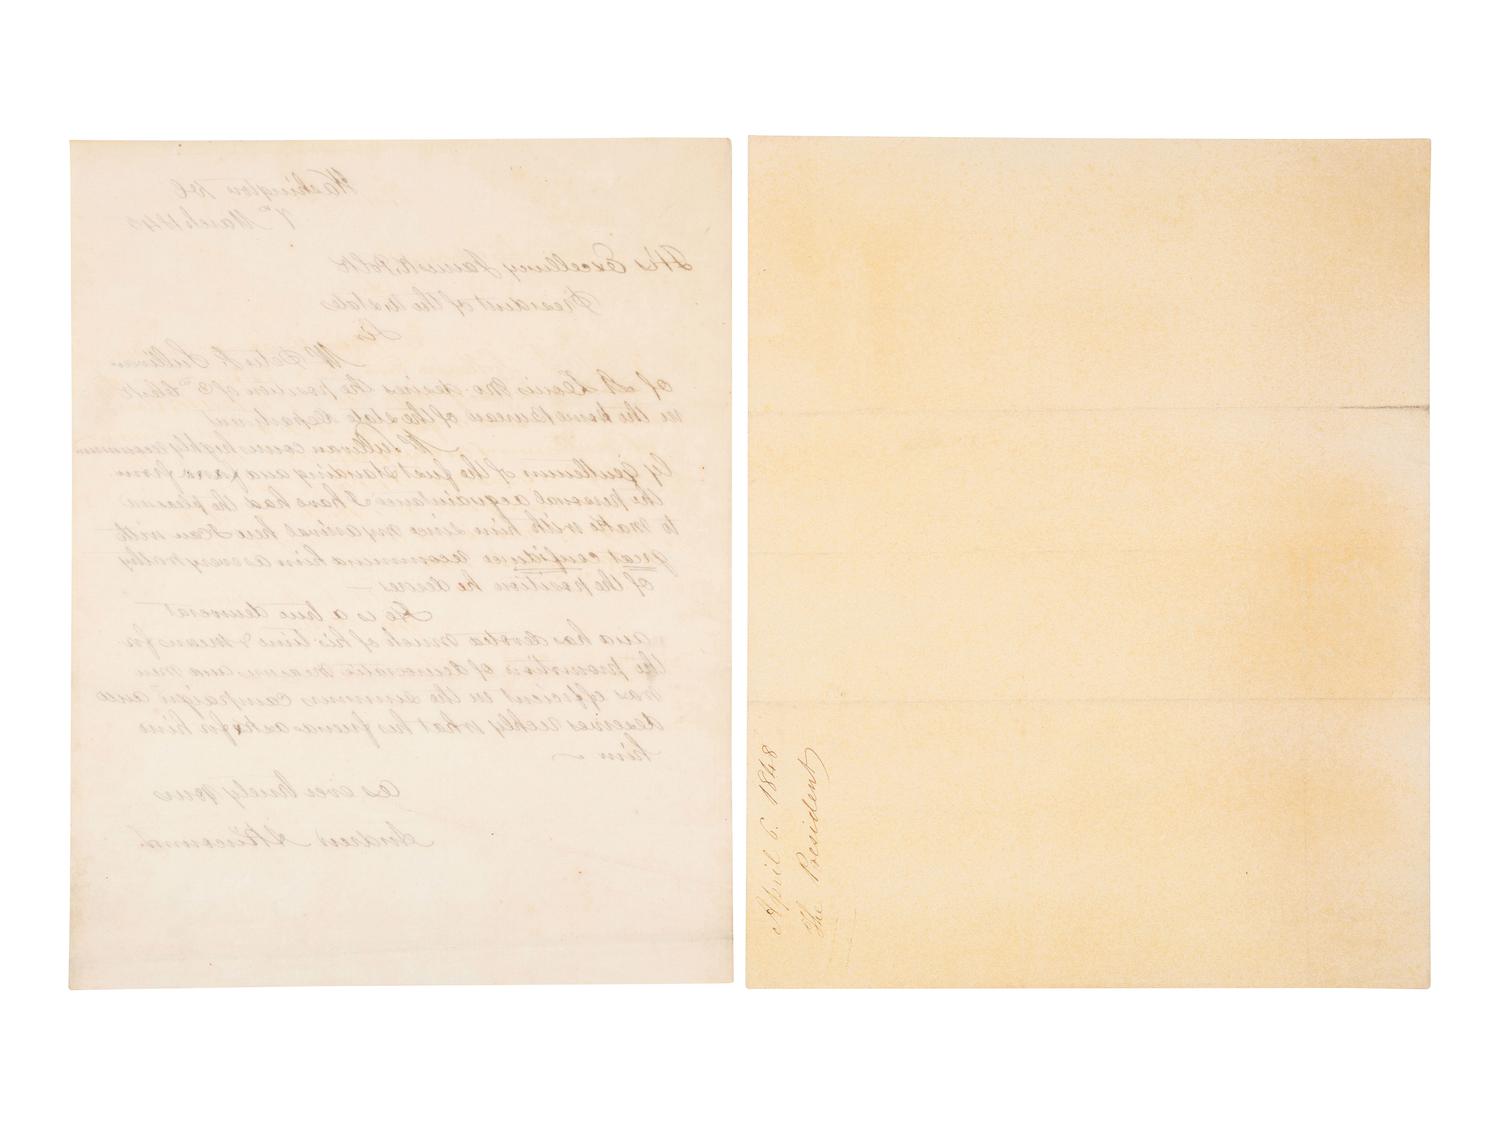 Washington
7th March 184
His Excellency James K. Polk
President of the U States
Sir
Mr Sullivan
of St Louis Mo desires the position of Clerk
in the home Bureau of the State Department
Mr Sullivan comes highly
by gentlemen of the first standing and from
the personal acquaintance I have had the
to make with him since my arrival here I can with
great confidence recommend him as every way
of the position he desires —
He is a true democrat
and has devoted much of his time & means for
the promotion of democratic and
was efficient in the campaign and
deserves what his friends ask for him
him —
As ever truely yours
Andrew
April 6. 1848
The President